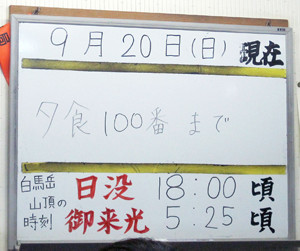 9月20日(日) 現在
夕食100番まで
白馬岳山頂の時刻
日没 18:00 頃
御来光 5:25 頃